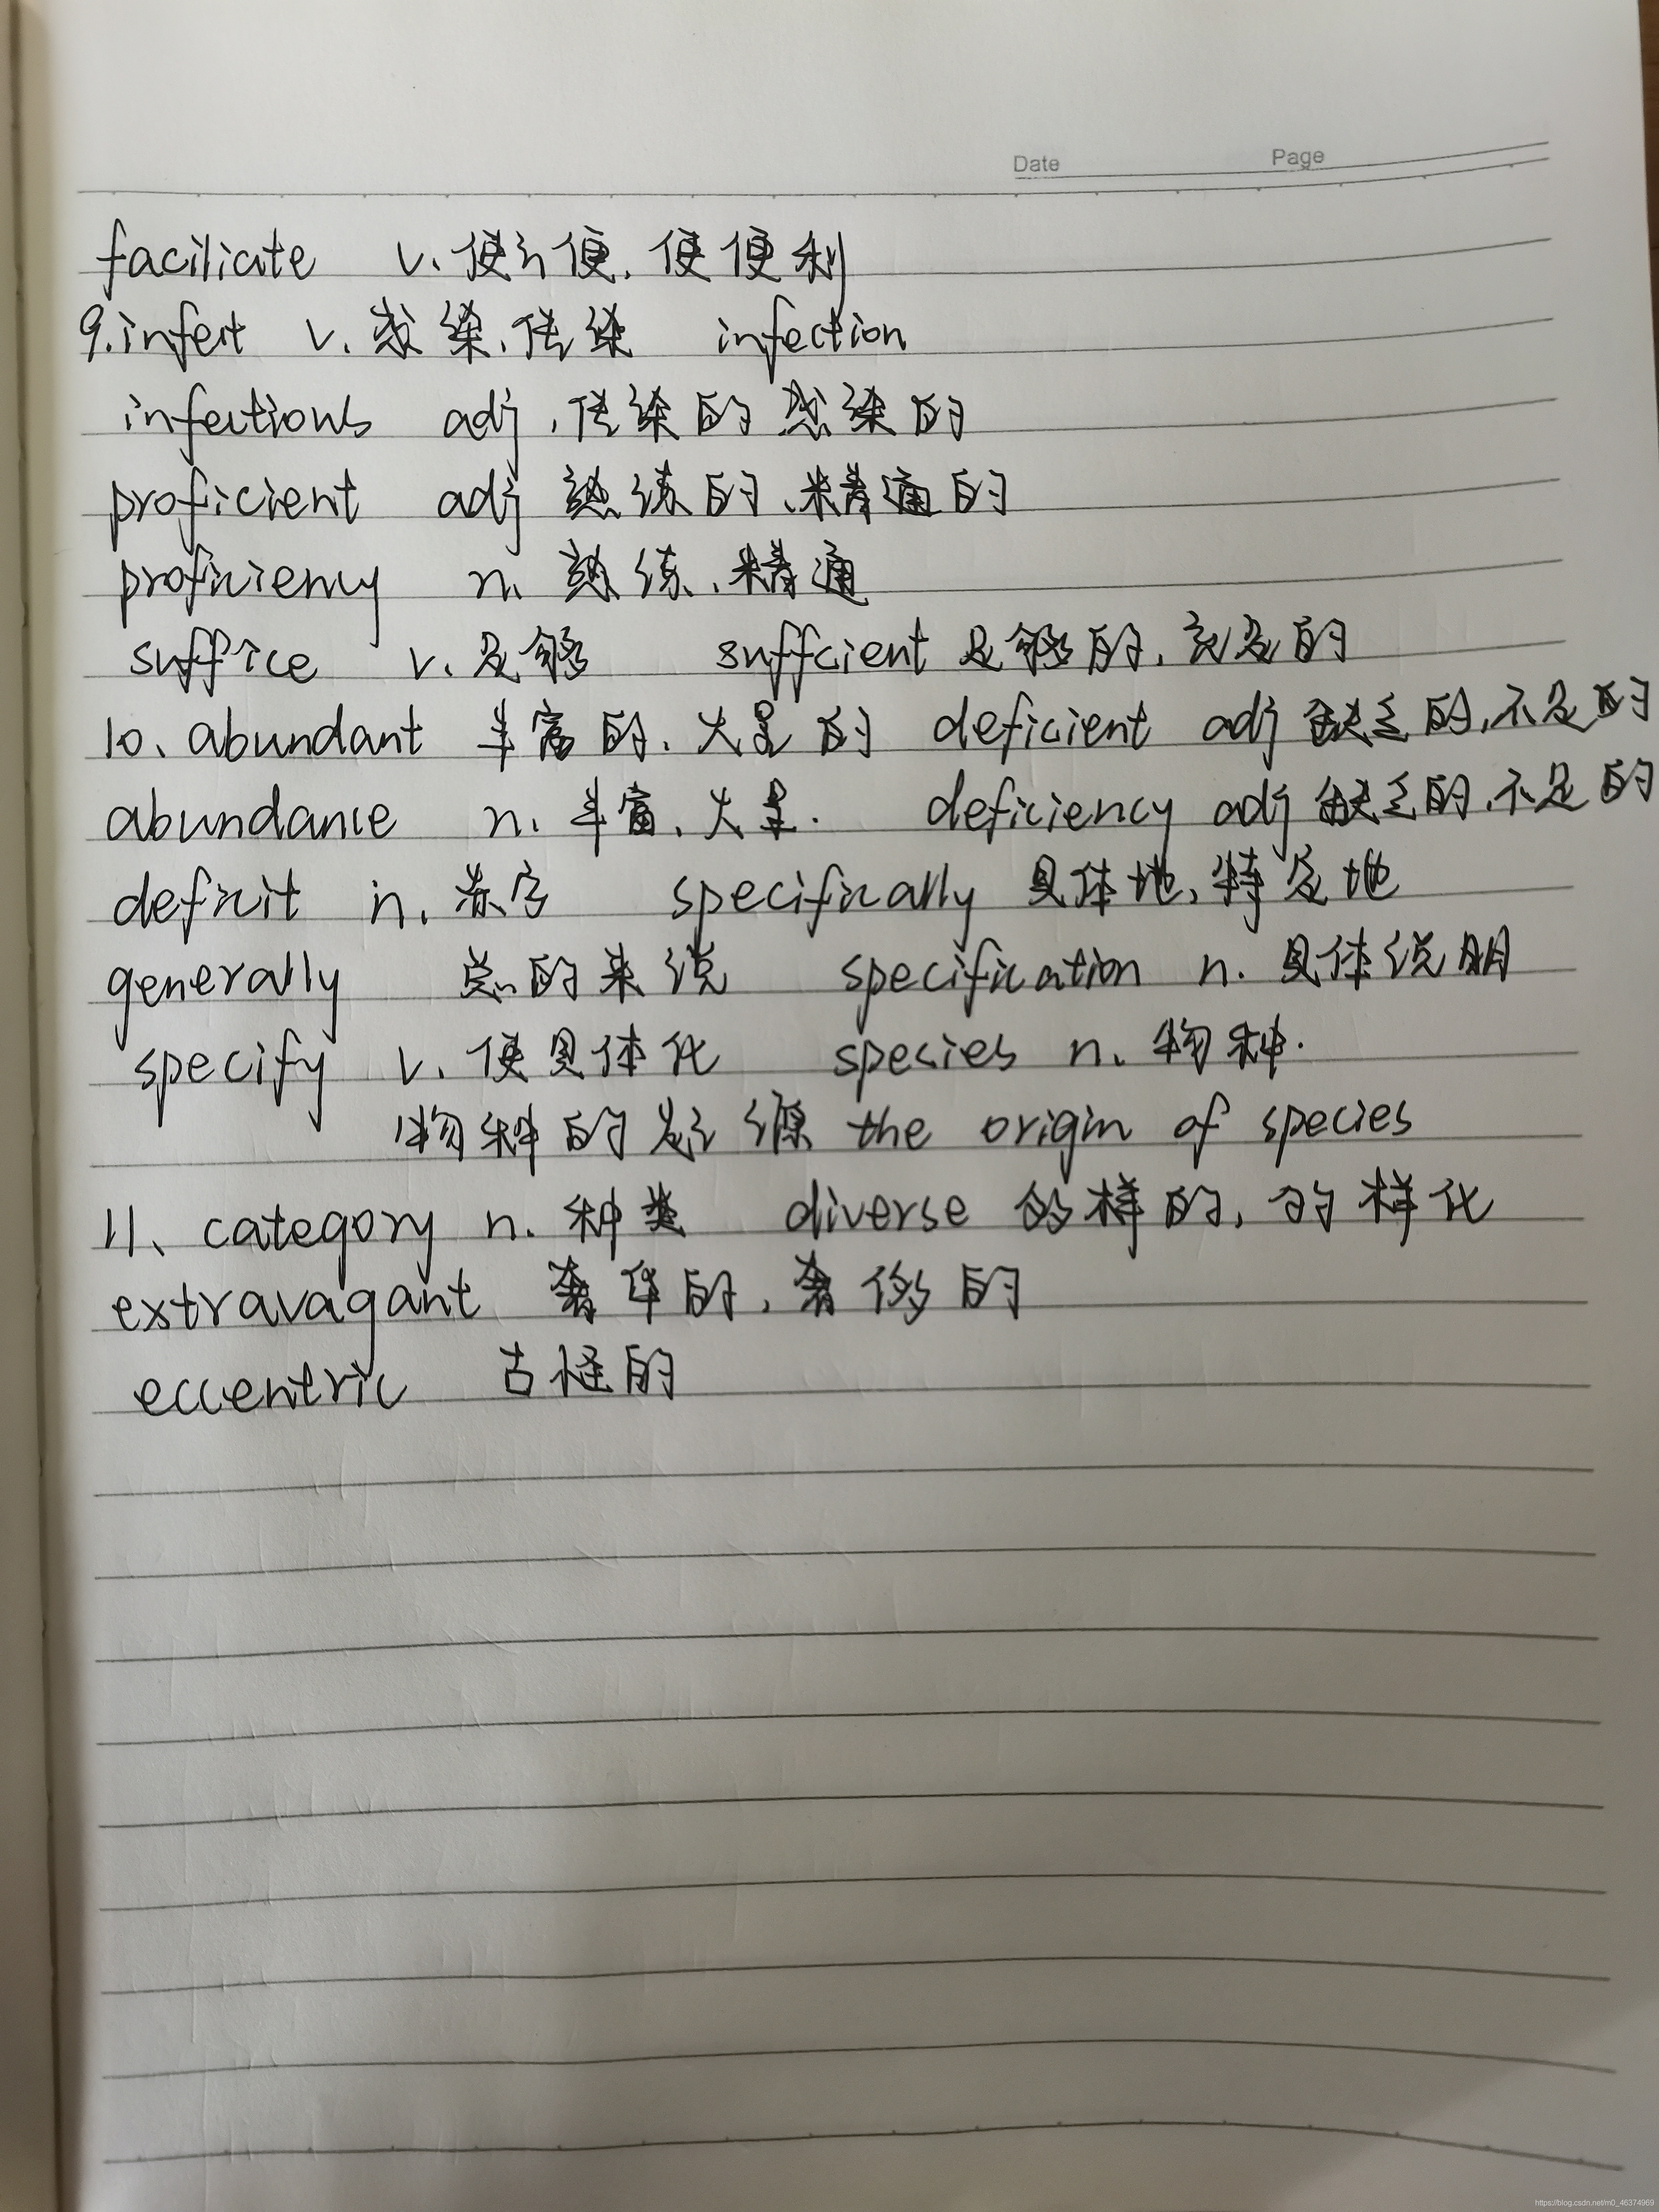 Date Page
faciliate v. 使方便. 使便利
9.infect v. 感染.传染 infection
infectious adj. 传染的 感染的
proficient adj 熟练的、精通的
proficiency n. 熟练、精通
suffice v. 足够 suffcient 足够的, 充足的
10、abundant 丰富的、大量的 deficient adj 缺乏的,不足的
abundance n. 丰富、大量. deficiency adj 缺乏的.不足的
deficit n. 赤字 specifically 具体地,特定地
generally 总的来说 specification n. 具体说明
specify v. 使具体化 species n. 物种.
物种的起源 the origin of species
11、category n. 种类 diverse 多样的, 多样化
extravagant 奢华的, 奢侈的
eccentric 古怪的
https://blog.csdn.net/m0_46374969